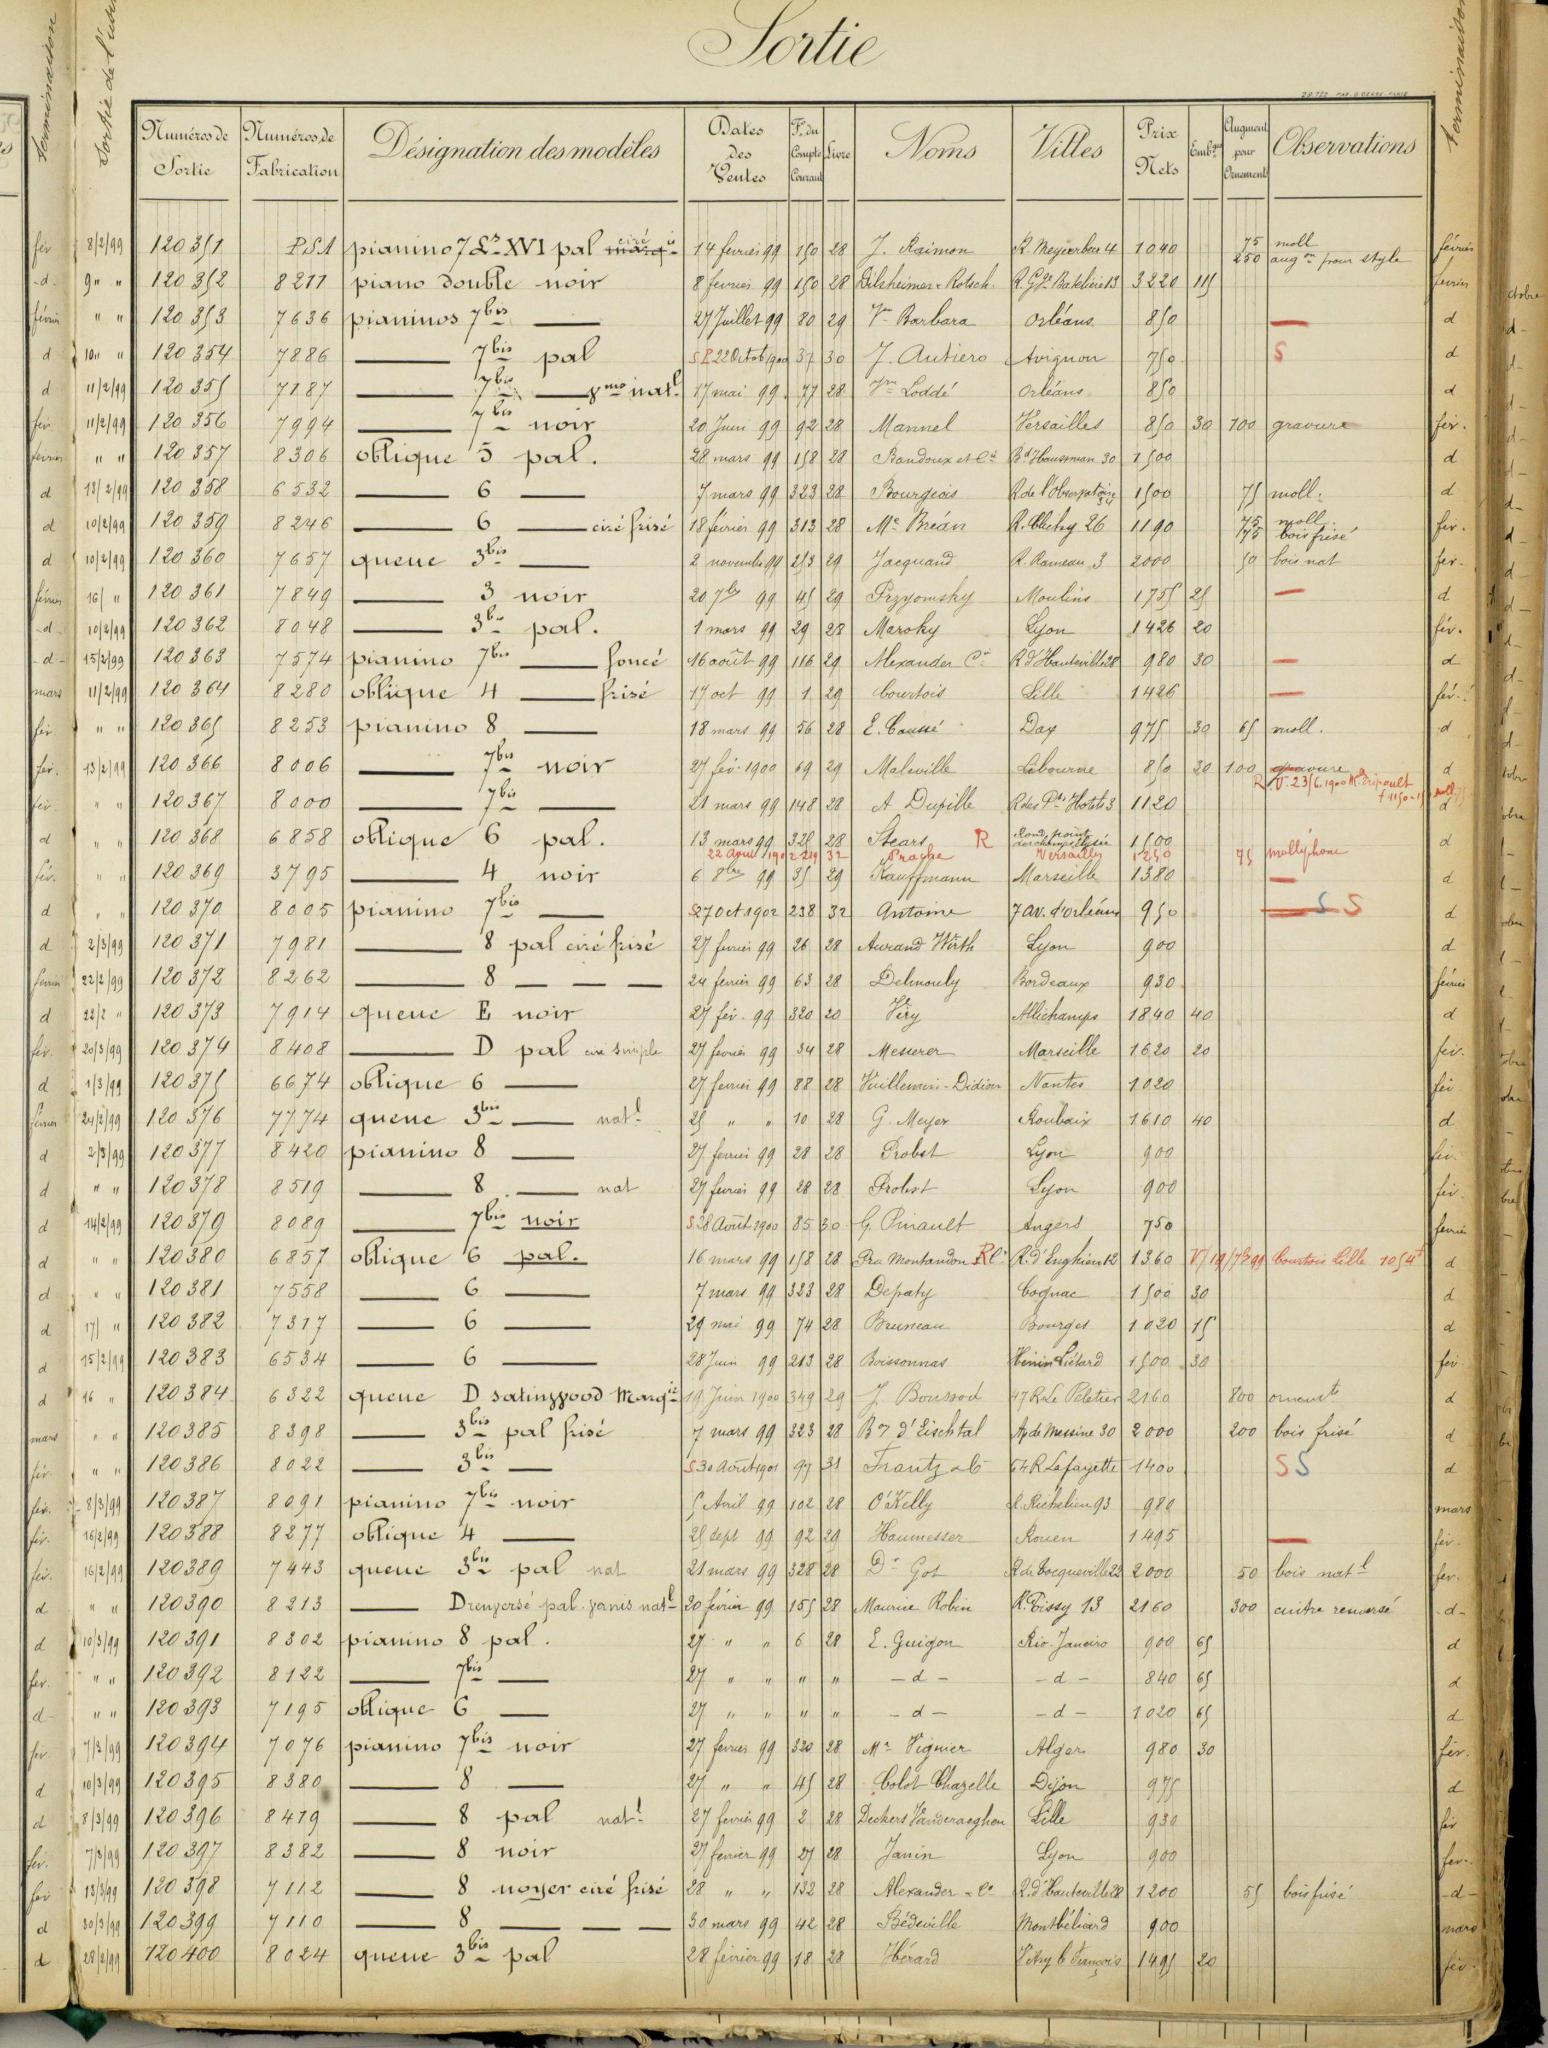 Sortie
terminaison
Sortie de l'usine
Numéros de Sortie | Numéros de Fabrication | Désignation des modèles | Dates des Ventes | Fº du Compte Courant | Livre | Noms | Villes | Prix Nets | Embge | Augment pour Ornements | Observations
terminaison
fév 8/2/99 120351 P.S.A pianino 7 Ls XVI pal ciré 14 fevrier 99 150 28 J. Raimon R. Meyerbeer 4 1040 75 moll février
250 augon pour style
d 9 " " 120352 8211 piano double noir 8 fevrier 99 150 28 Dilsheimer & Rotsch. R. Gde Batelière 13 3220 115 fevrier
février " " 120353 7636 pianinos 7bis — 27 Juillet 99 80 29 Vve Barbara Orléans 850 — d
d 10 " " 120354 7886 — 7bis pal S R 22 Octob 1900 37 30 J. Autiero Avignon 750 S d
d 11/2/99 120355 7187 — 7bis — natl 17 mai 99 77 28 Vve Loddé Orléans 850 d
fév 11/2/99 120356 7994 — 7bis noir 20 Juin 99 92 28 Mannel Versailles 850 30 100 gravure fév.
fevrier " " 120357 8306 oblique 5 pal. 28 mars 99 158 28 Baudoux et Cie Bd Hausman 30 1500 d
d 13/2/99 120358 6532 — 6 — 7 mars 99 323 28 Bourgeois R de l'Observatoire 1500 75 moll. d
d 10/2/99 120359 8246 — 6 — ciré frisé 18 février 99 313 28 Me Bréan R. Clichy 26 1190 75 moll fev.
175 bois frisé
d 10/2/99 120360 7657 queue 3bis — 2 novembre 99 253 29 Jacquand R. Rameau 3 2000 50 bois nat fev.
février 16/ " 120361 7849 — 3 noir 20 7bre 99 45 29 Przyomsky Moulins 1755 25 — d
d 10/2/99 120362 8048 — 3bis pal. 1 mars 99 29 28 Maroky Lyon 1426 20 fév.
d 15/2/99 120363 7574 pianino 7bis — foncé 16 août 99 116 29 Alexander Cie R d'Hauteville 28 980 30 — d
mars 11/2/99 120364 8280 oblique 4 — frisé 17 oct 99 1 29 Courtois Lille 1426 — fév.
fév " " 120365 8253 pianino 8 — 18 mars 99 56 28 E. Caussé Dax 975 30 65 moll. d
fév. 13/2/99 120366 8006 — 7bis noir 27 fév. 1900 69 29 Maleville Libourne 850 30 100 gravure d
R V. 23/6.1900
fév " " 120367 8000 — 7bis — 21 mars 99 148 28 A Dupille R des Pts Hotels 3 1120 d
d " " 120368 6858 oblique 6 pal. 13 mars 99 328 28 Stears R Rond point des champs Elysées 1500 d
22 Avril 1902 219 32 Prache Versailles 1250 75 molliphone
fév. " " 120369 3795 — 4 noir 6 8bre 99 35 29 Kauffmann Marseille 1380 — d
d " " 120370 8005 pianino 7bis — S 27 Oct 1902 238 32 Antoine 7 av. d'orléans 950 — S S d
d 2/3/99 120371 7981 — 8 pal ciré frisé 27 fevrier 99 26 28 Aurand Wirth Lyon 900 d
février 22/2/99 120372 8262 — 8 — — — 24 fevrier 99 63 28 Delmouly Bordeaux 930 février
d 22/2 " 120373 7914 queue E noir 27 fév. 99 320 20 Véry Allichamps 1840 40 d
fév. 20/3/99 120374 8408 — D pal ciré simple 27 fevrier 99 34 28 Messerer Marseille 1620 20 fév.
d 1/3/99 120375 6674 oblique 6 — 27 fevrier 99 88 28 Vuillemin-Didion Nantes 1020 fév
février 24/2/99 120376 7774 queue 3bis — natl 25 " " 10 28 G. Meyer Roubaix 1610 40 d
d 2/3/99 120377 8420 pianino 8 — 27 fevrier 99 28 28 Probst Lyon 900 fév.
d " " 120378 8519 — 8 — nat 27 fevrier 99 28 28 Probst Lyon 900 fév.
d 14/2/99 120379 8089 — 7bis noir S 28 Août 1900 85 30 G. Pinault Angers 750 fevrier
d " " 120380 6857 oblique 6 pal. 16 mars 99 158 28 Fra Montandon R R. d'Enghien 12 1360 V/ 19/7b 99 Courtois Lille 1054f d
d " " 120381 7558 — 6 — 7 mars 99 323 28 Depaty Cognac 1500 30 d
d 17/ " 120382 7317 — 6 — 29 mai 99 74 28 Bruneau Bourges 1020 15 d
d 15/2/99 120383 6534 — 6 — 28 Juin 99 213 28 Boissonnas Hénin Liétard 1500 30 fév
d 16 " 120384 6322 queue D satinwood Marqie 19 Juin 1900 349 29 J. Boussod 47 R Le Peletier 2160 800 ornemts d
mars " " 120385 8398 — 3bis pal frisé 7 mars 99 323 28 Bon d'Eischtal Av de Messine 30 2000 200 bois frisé d
fév. " " 120386 8022 — 3bis — S 30 Août 1901 97 31 Frantz & Cie 54 R Lafayette 1400 S S d
fév. 8/3/99 120387 8091 pianino 7bis noir 5 Avril 99 102 28 O'Kelly R. Richelieu 93 980 mars
fév. 16/2/99 120388 8277 oblique 4 — 25 sept 99 92 29 Haumesser Rouen 1495 — fev.
fév. 16/2/99 120389 7443 queue 3bis pal nat 21 mars 99 328 28 Dr Got R de Tocqueville 22 2000 50 bois natl fev.
d " " 120390 8213 — D renversé pal. vernis natl 20 février 99 155 28 Maurice Robin R. Tissy 13 2160 300 cintre renversé d
d 10/3/99 120391 8302 pianino 8 pal. 27 " " 6 28 E. Guigon Rio-Janeiro 900 65 d
fev. " " 120392 8122 — 7bis — 27 " " " " — d — — d — 840 65 d
d " " 120393 7195 oblique 6 — 27 " " " " — d — — d — 1020 65 d
fév 7/3/99 120394 7076 pianino 7bis noir 27 fevrier 99 320 28 Mr Vignier Alger 980 30 fév.
d 10/3/99 120395 8380 — 8 — 27 " " 45 28 Colot Chazelle Dijon 975 d
d 8/3/99 120396 8479 — 8 pal natl 27 fevrier 99 2 28 Deckers Vanderaeghen Lille 930 fév
fév. 7/3/99 120397 8382 — 8 noir 27 fevrier 99 27 28 Janin Lyon 900 fev.
fév 13/3/99 120398 7112 — 8 noyer ciré frisé 28 " " 132 28 Alexander & Cie R. d'Hauteville 28 1200 55 bois frisé d
d 30/3/99 120399 7110 — 8 — — — 30 mars 99 42 28 Bédeville Montbéliard 900 mars
d 28/2/99 120400 8024 queue 3bis pal 28 février 99 18 28 Hérard Vitry le François 1495 20 fév.